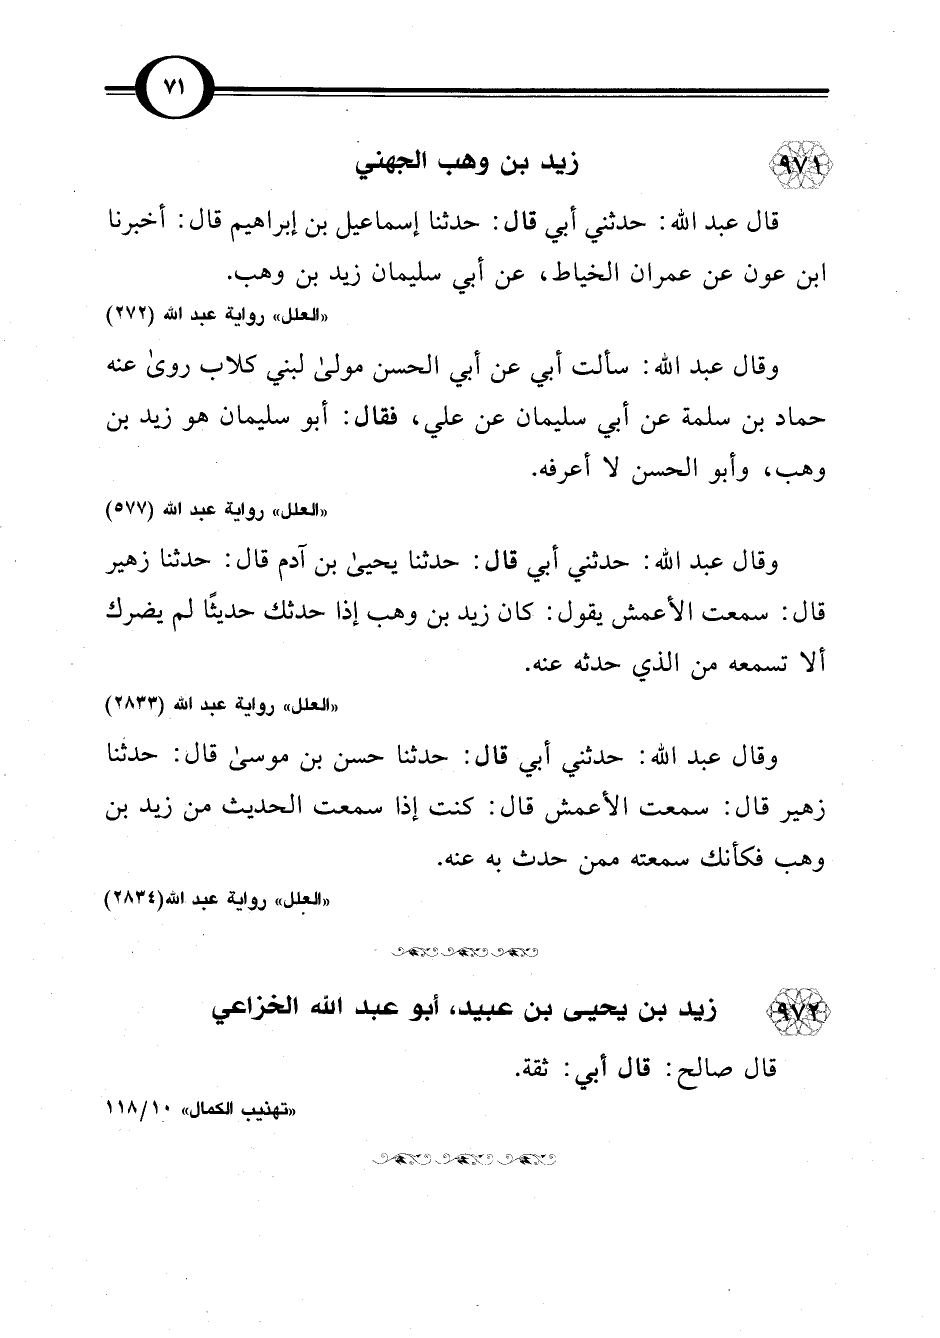 ٧١
٩٧١ زيد بن وهب الجهني
قال عبد الله: حدثني أبي قال: حدثنا إسماعيل بن إبراهيم قال: أخبرنا
ابن عون عن عمران الخياط، عن أبي سليمان زيد بن وهب.
«العلل» رواية عبد الله (٢٧٢)
وقال عبد الله: سألت أبي عن أبي الحسن مولىٰ لبني كلاب روىٰ عنه
حماد بن سلمة عن أبي سليمان عن علي، فقال: أبو سليمان هو زيد بن
وهب، وأبو الحسن لا أعرفه.
«العلل» رواية عبد الله (٥٧٧)
وقال عبد الله: حدثني أبي قال: حدثنا يحيىٰ بن آدم قال: حدثنا زهير
قال: سمعت الأعمش يقول: كان زيد بن وهب إذا حدثك حديثًا لم يضرك
ألا تسمعه من الذي حدثه عنه.
«العلل» رواية عبد الله (٢٨٣٣)
وقال عبد الله: حدثني أبي قال: حدثنا حسن بن موسىٰ قال: حدثنا
زهير قال: سمعت الأعمش قال: كنت إذا سمعت الحديث من زيد بن
وهب فكأنك سمعته ممن حدث به عنه.
«العلل» رواية عبد الله(٢٨٣٤)
٩٧٢ زيد بن يحيى بن عبيد، أبو عبد الله الخزاعي
قال صالح: قال أبي: ثقة.
«تهذيب الكمال» ١١٨/١٠